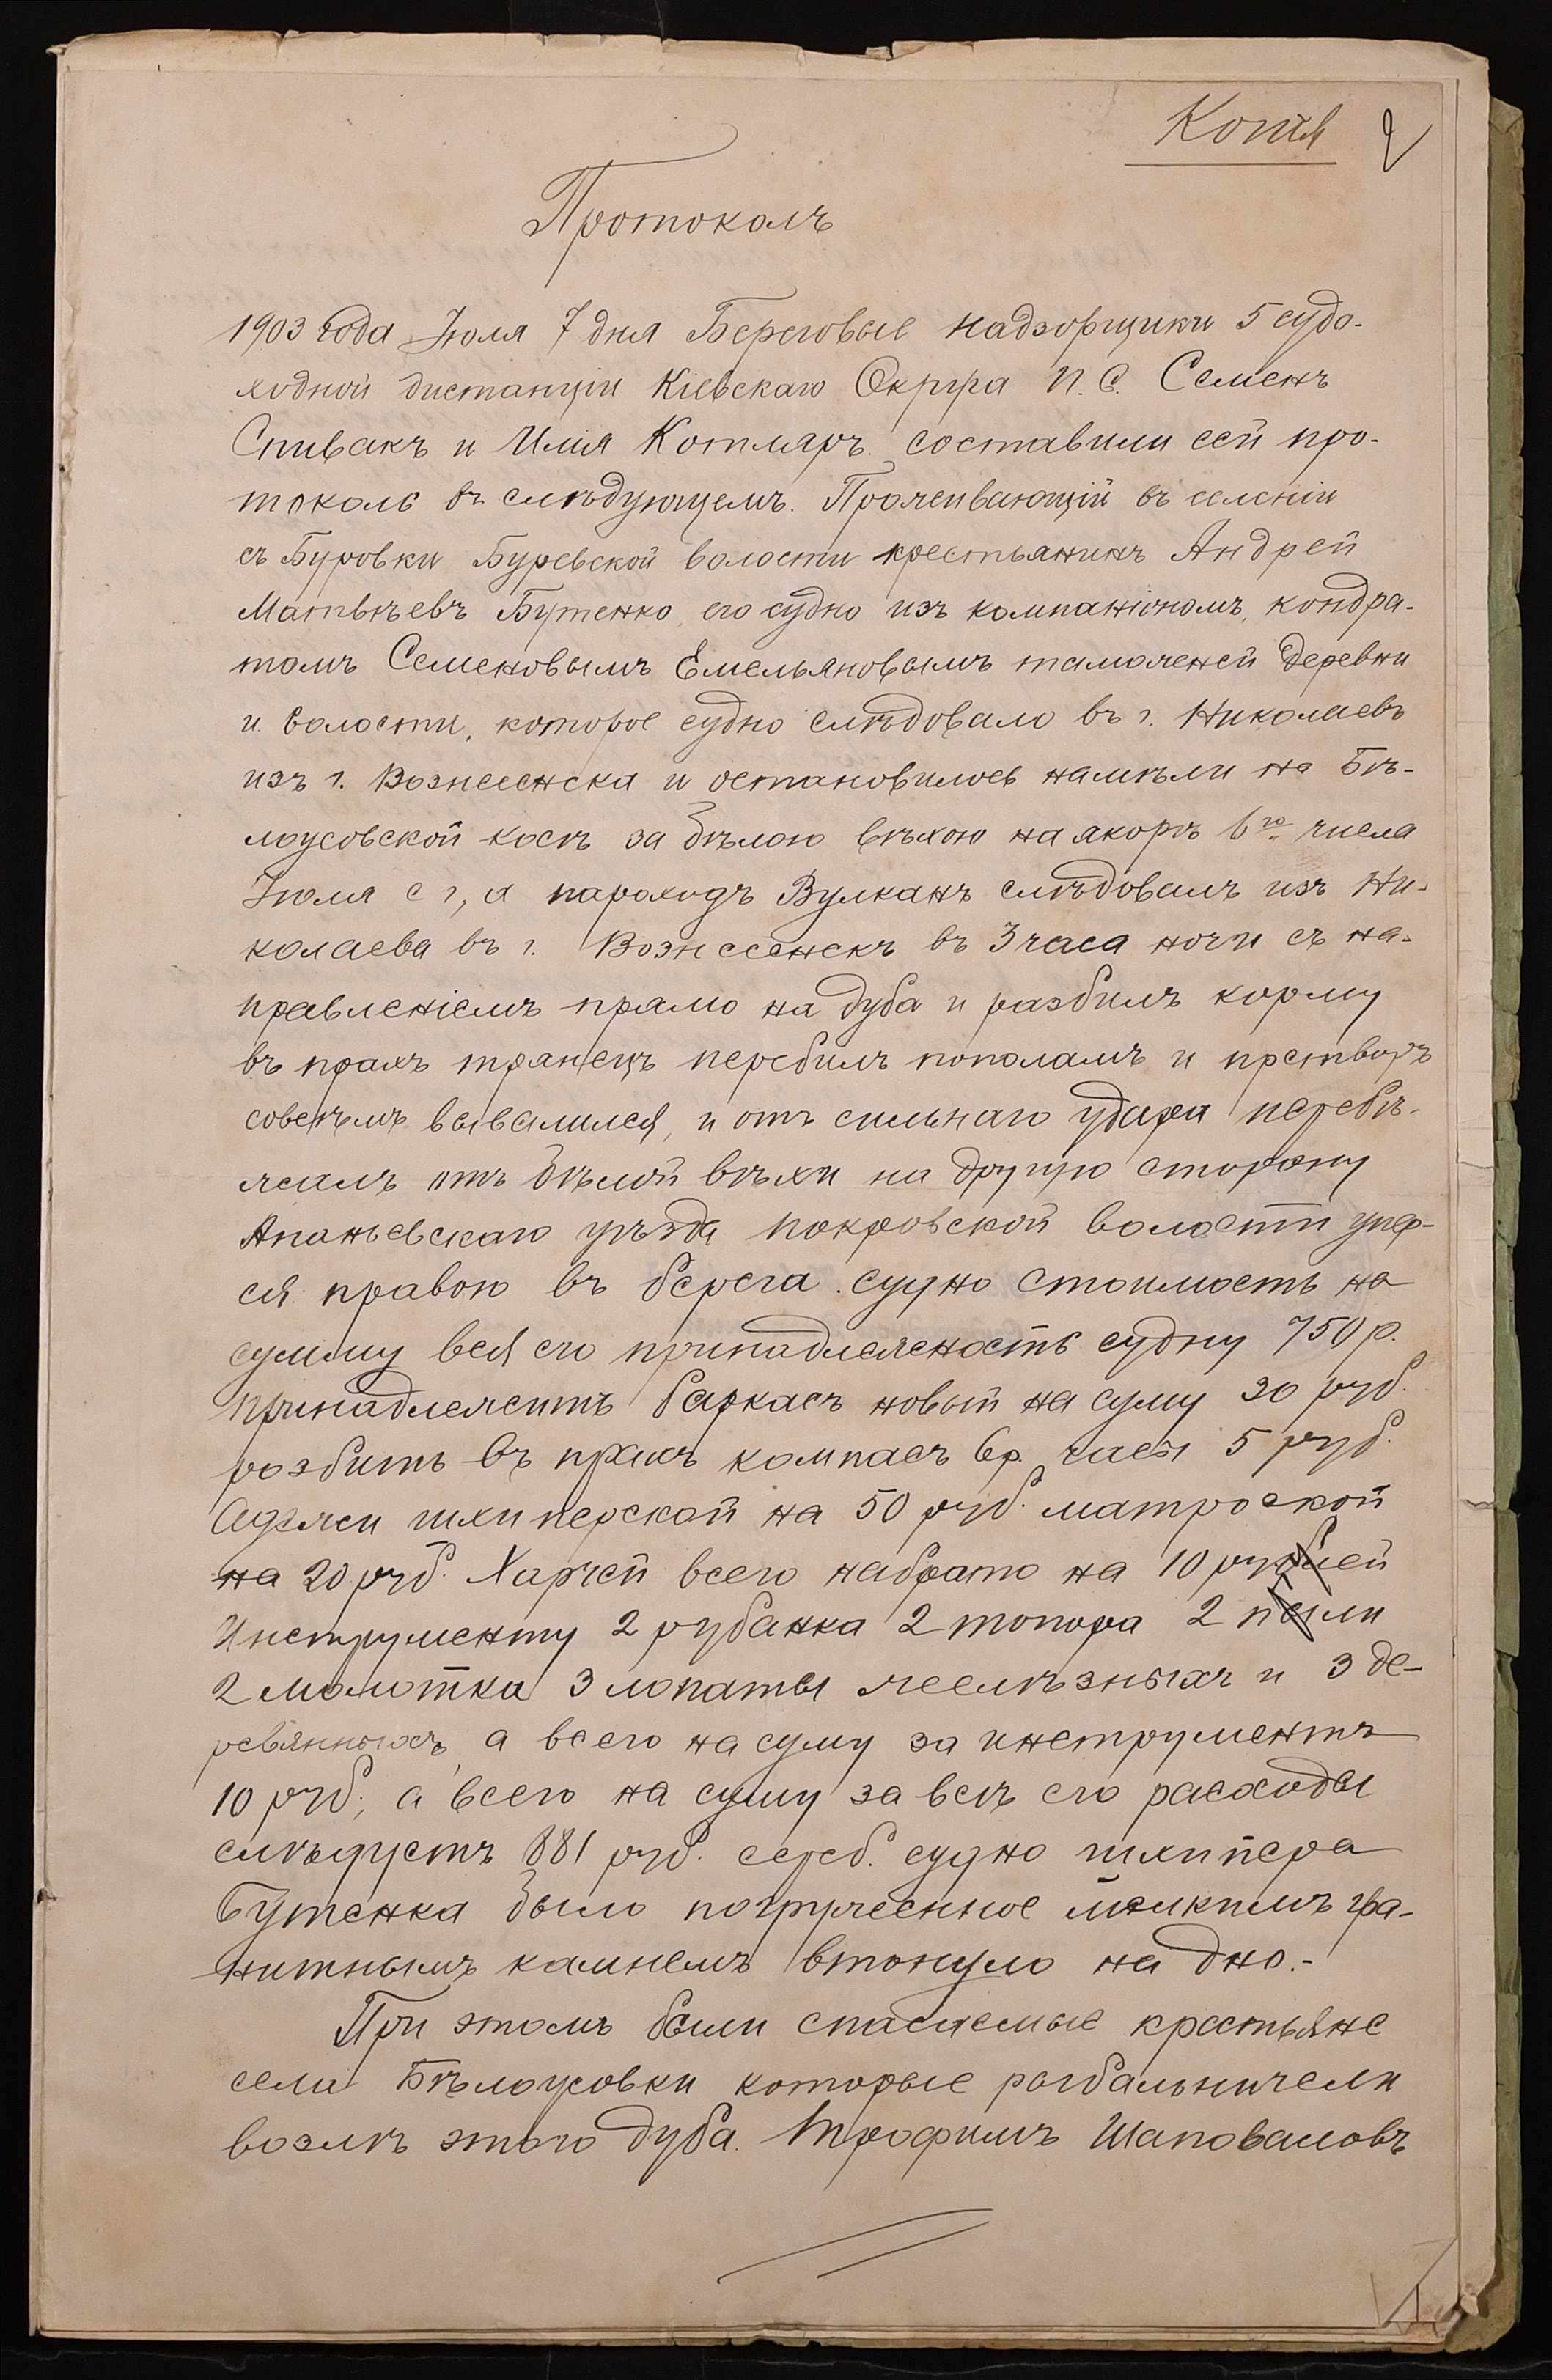 Копія
Протоколъ
1903 года Іюля 7 дня Береговые надзорщики 5 судо-
ходной дистанціи Кіевскаго Округа П. С. Семенъ
Спивакъ и Илія Котляръ составили сей про-
токолъ въ слѣдующемъ. Проживающій въ селеніи
съ Буровки Буревской волости крестьянинъ Андрей
Матвѣевъ Бутенко, его судно изъ компаніономъ, кондра-
томъ Семеновымъ Емельяновымъ таможеней деревни
и волости, которое судно слѣдовало въ г. Николаевъ
изъ г. Вознесенска и остановилось намѣли на Бѣ-
лоусовской косѣ за бѣлою вѣхою на якорѣ 6го числа
Іюля с г, а пароходъ Вулканъ слѣдовалъ изъ Ни-
колаева въ г. Вознесенскъ въ 3 часа ночи съ на-
правленіемъ прямо на дуба и разбилъ корму
въ прахъ транецъ перебилъ пополамъ и
совсѣмъ вывалился, и отъ сильнаго удара перебѣ-
жалъ отъ бѣлой вѣхи на другую сторону
Ананьевскаго уѣзда покровской волости упер-
ся правою въ берега. судно стоимость на
сумму вся его принадлежность судну 750 р.
принадлежитъ баркасъ новый на суму 30 руб.
розбитъ въ прахъ компасъ 6 р. часы 5 руб.
Одежи шхиперской на 50 руб. матроской
на 20 руб. Харчей всего набрато на 10 рублей
Инструменту 2 рубанка 2 топора 2 пили
2 молотка 3 лопаты желѣзныхъ и 3 де-
ревянныхъ, а всего на суму за инструментъ
10 руб; а всего на суму за всѣ его расходы
слѣдуетъ 881 руб. сереб. судно шхипера
Бутенка было погруженное мѣлкимъ гра-
нитнымъ камнемъ втонуло на дно.-
При этомъ были спасаемые крестьяне
села Бѣлоусовки которые рыбальничели
возлѣ этого дуба. Трофимъ Шаповаловъ